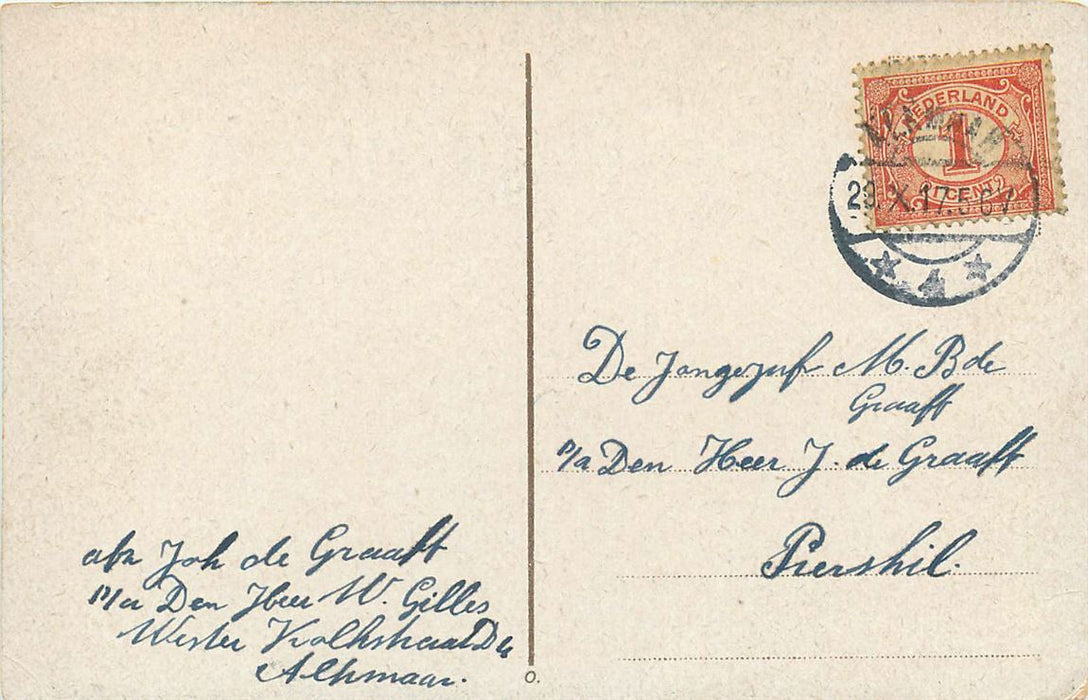 NEDERLAND
1
CENT
ALKMAAR
29.X.17.5
4
De Jongejuf M. B de
Graaff
p/a Den Heer J. de Graaff
Piershil.
afz Joh de Graaff
p/a Den Heer W. Gilles
Wester Kolkstraat
Alkmaar.
O.